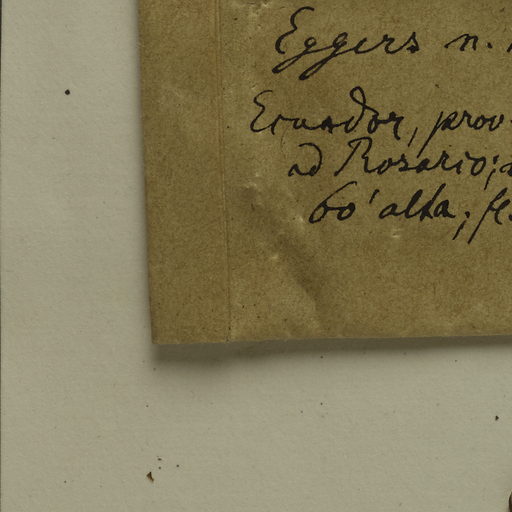 Eggers n.
Ecuador, prov.
ad Rosario;
60' alta; fl.